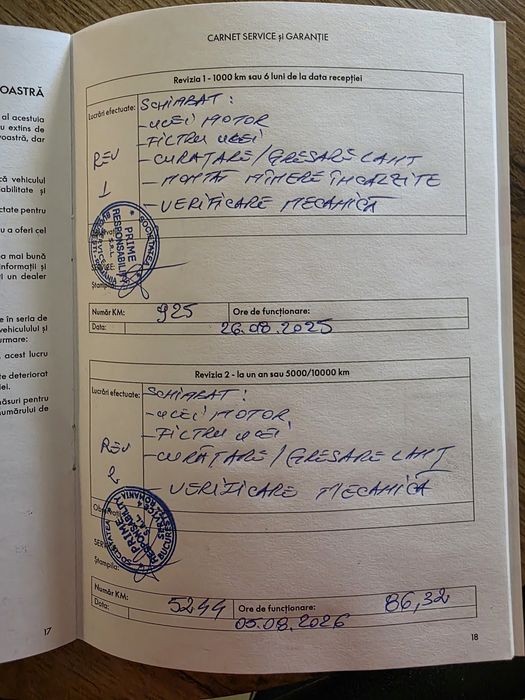 OASTRĂ
al acestuia
u extins de
voastră, dar
că vehiculul
abilitate și
ctate pentru
u a oferi cel
a mai bună
informații și
l un dealer
e în seria de
vehiculului și
urmare:
acest lucru
te deteriorat
iei.
măsuri pentru
numărului de
17
CARNET SERVICE și GARANȚIE
Revizia 1 - 1000 km sau 6 luni de la data recepției
Lucrări efectuate:
REV
1
SCHIMBAT:
- ULEI MOTOR
- FILTRU ULEI
- CURĂȚARE/GRESARE LANȚ
- MONTAT MÎNERE ÎNCĂLZITE
- VERIFICARE MECANICĂ
SOCIETATEA
PRIME
RESPONSABILITY
S.R.L.
SERVICE:
Ștampila
Număr KM: 925 Ore de funcționare:
Data: 26.08.2025
Revizia 2 - la un an sau 5000/10000 km
Lucrări efectuate:
REV
2
SCHIMBAT:
- ULEI MOTOR
- FILTRU ULEI
- CURĂȚARE/GRESARE LANȚ
- VERIFICARE MECANICĂ
SOCIETATEA
PRIME
RESPONSABILITY
S.R.L.
Ștampila
Număr KM: 5244 Ore de funcționare: 86,32
Data: 05.08.2026
18